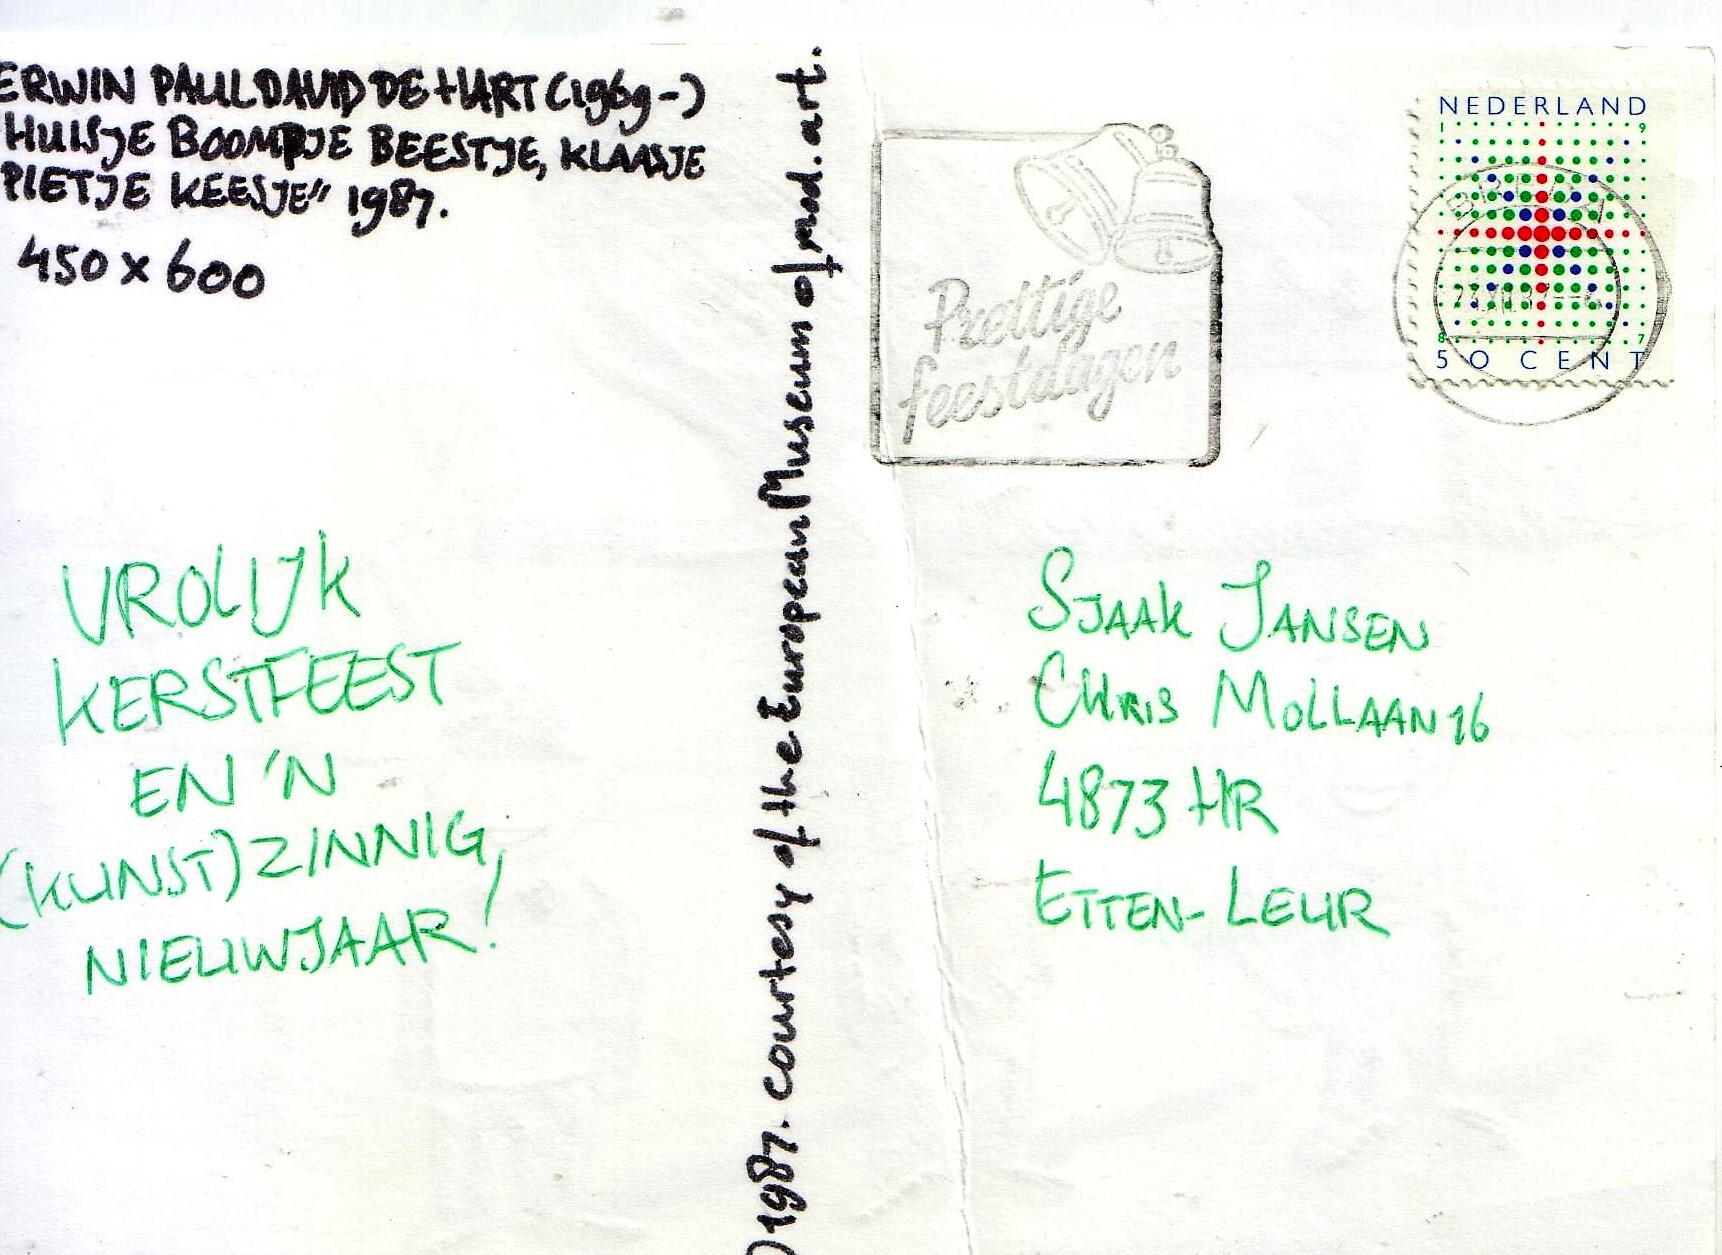 ERWIN PAUL DAVID DE HART (1969-)
HUISJE BOOMPJE BEESTJE, KLAASJE
PIETJE KEESJE" 1987.
450 x 600
VROLIJK
KERSTFEEST
EN 'N
(KUNST)ZINNIG,
NIEUWJAAR!
) 1987. courtesy of the European Museum of mod. art.
Prettige
feestdagen
NEDERLAND
1 9
8 7
50 CENT
SJAAK JANSEN
CHRIS MOLLAAN 16
4873 HR
ETTEN-LEUR